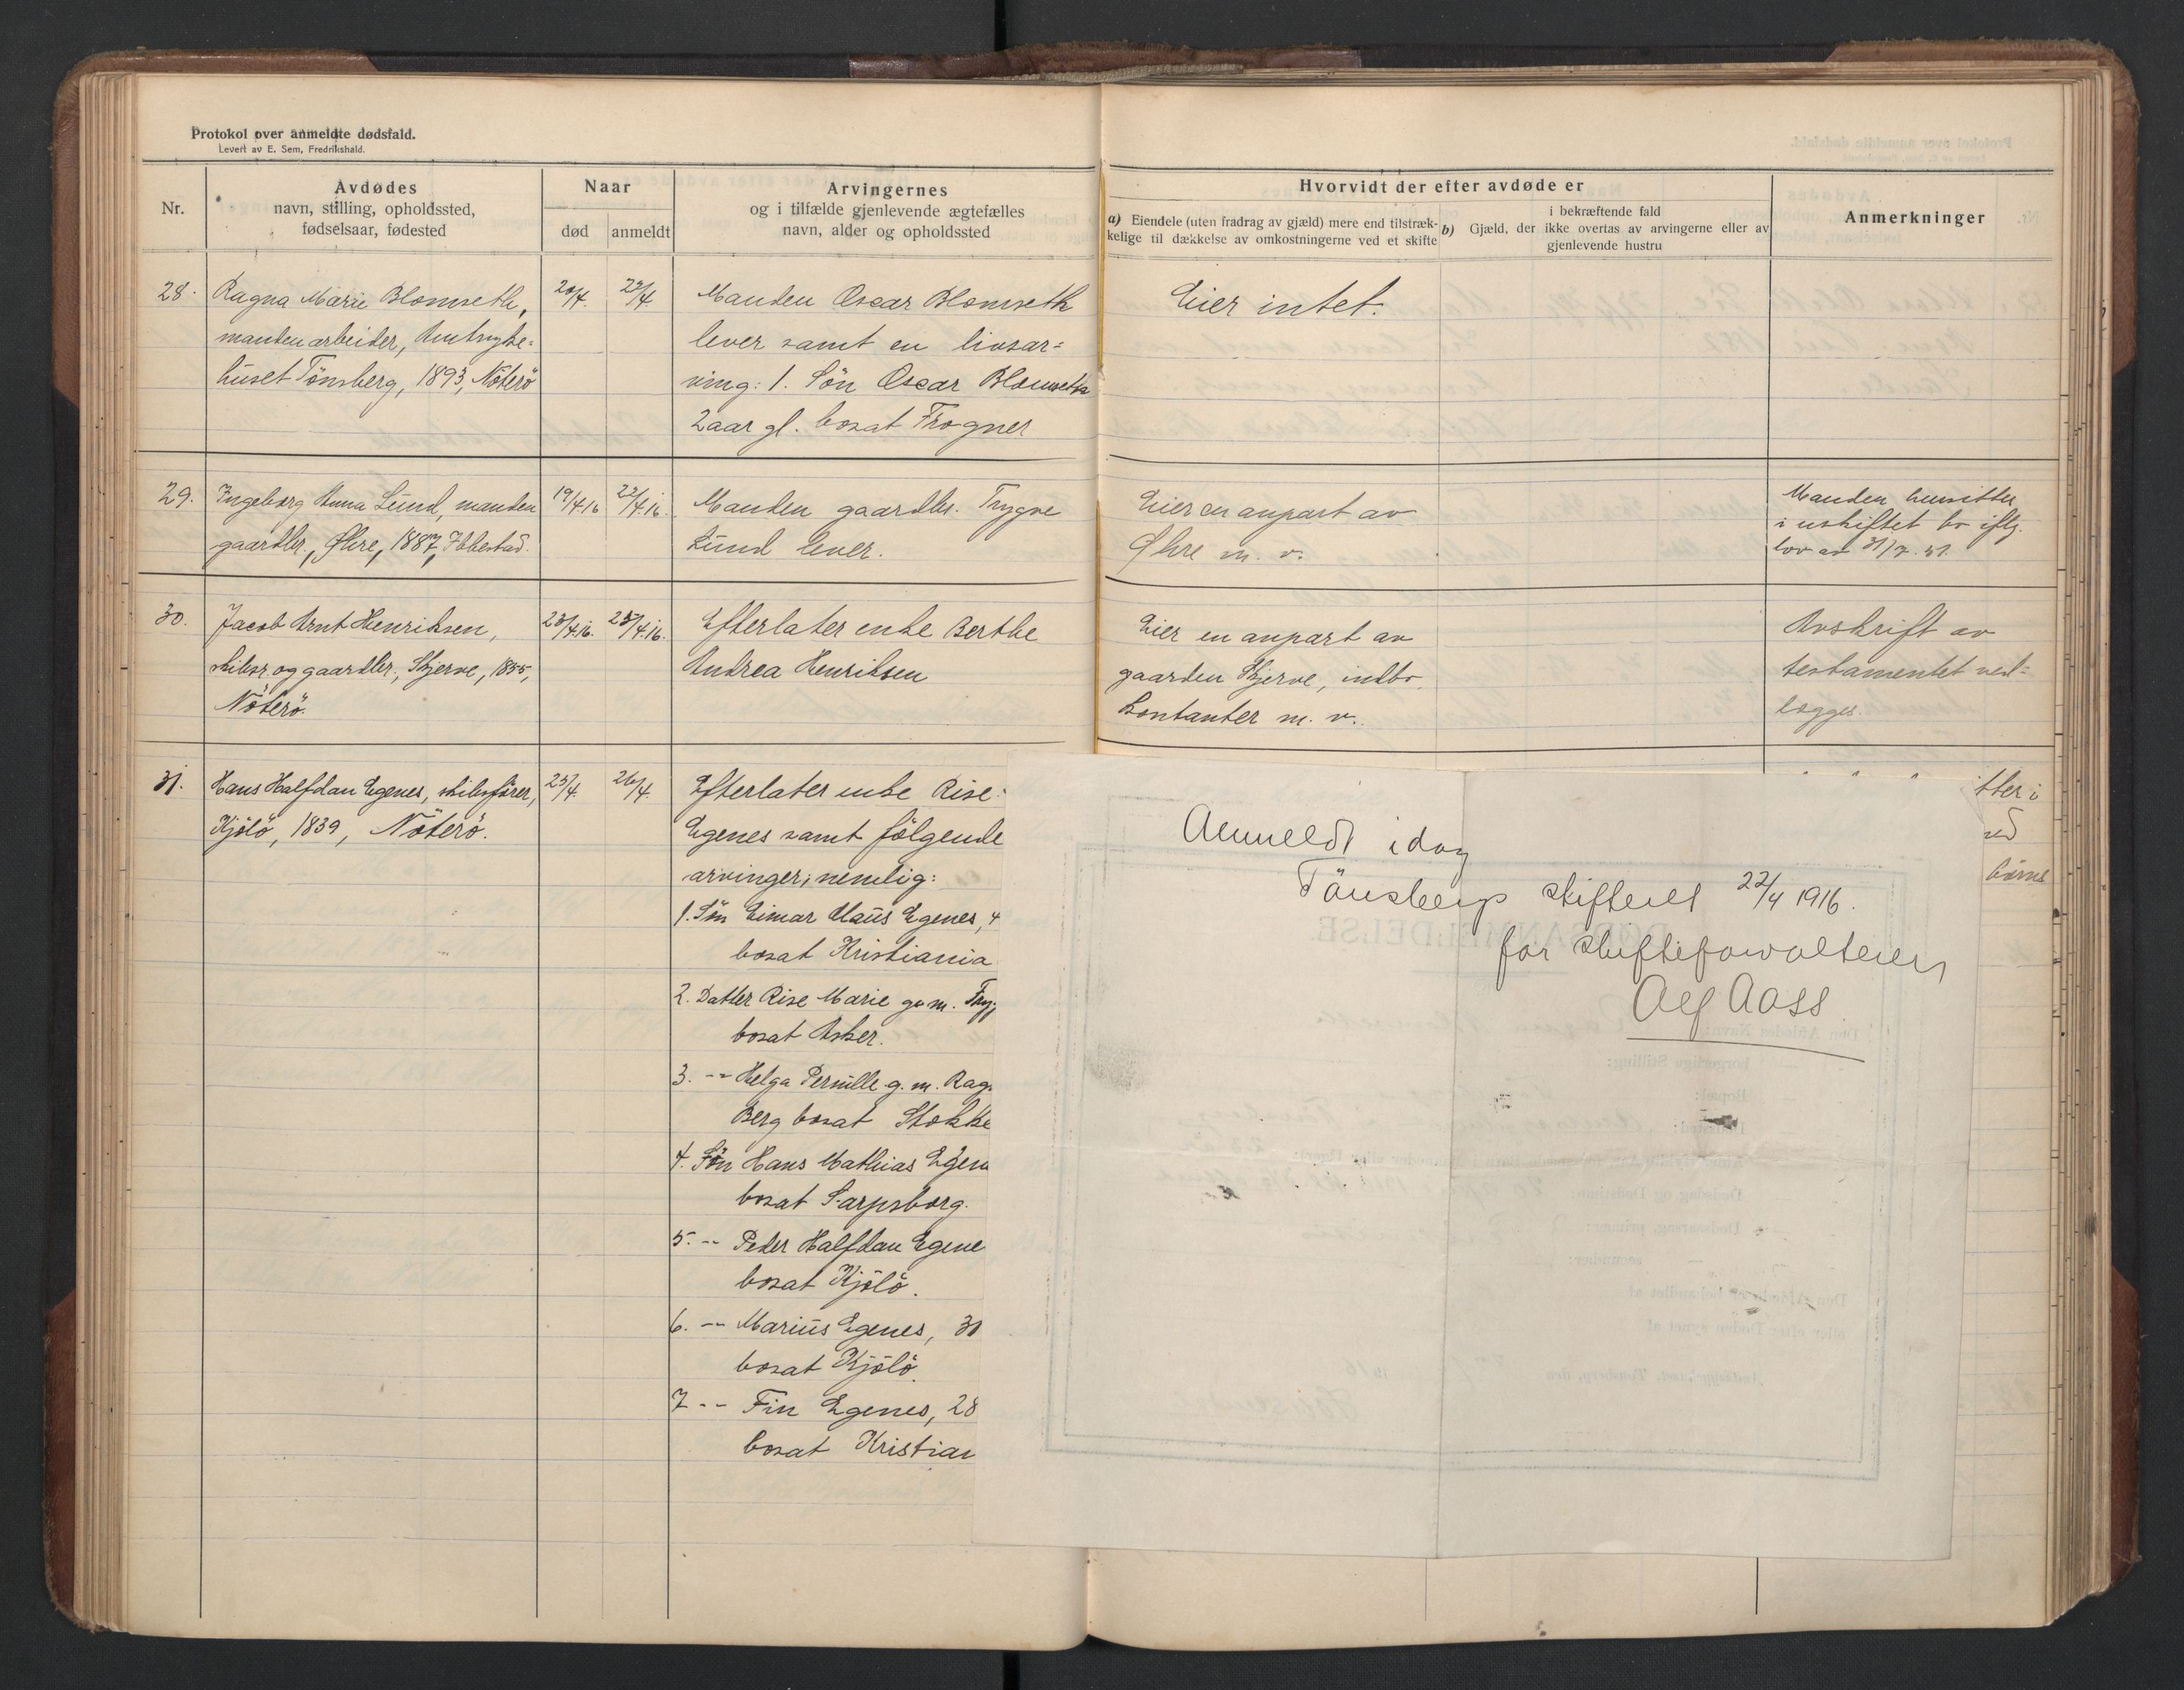 Protokol over anmeldte dødsfald.
Levert av E. Sem, Fredrikshald.
Nr.
Avdødes
navn, stilling, opholdssted,
fødselsaar, fødested
Naar
død
anmeldt
Arvingernes
og i tilfælde gjenlevende ægtefælles
navn, alder og opholdssted
Hvorvidt der efter avdøde er
a) Eiendele (uten fradrag av gjæld) mere end tilstræk-
kelige til dækkelse av omkostningerne ved et skifte
i bekræftende fald
b) Gjæld, der ikke overtas av arvingerne eller av
gjenlevende hustru
Anmerkninger
28.
Ragna Marie Blomseth,
manden arbeider,
huset Tönsberg, 1893, Nöterö
20/4.
22/4.
Manden Oscar Blomseth
lever samt en livsar=
ving: 1. Sön Oscar Blomseth
2 aar gl. bosat Frogner
Eier intet.
29.
Ingeborg Anna Lund, manden
gaardbr., Øhre, 1887, Ibbestad.
19/4.16
22/4.16.
Manden gaardbr. Trygve
Lund lever.
Eier en anpart av
Øhre m. v.
Manden hensitter
i uskiftet bo iflg.
lov av 31/7. 51.
30.
Jacob Arnt Henriksen,
skibsr. og gaardbr., Skjerve, 1855,
Nöterö.
23/4.16.
25/4.16.
Efterlater enke Berthe
Andrea Henriksen
Eier en anpart av
gaarden Skjerve, indbo,
kontanter m. v.
Avskrift av
testamentet ved=
lægges.
31.
Hans Halfdan Egenes, skibsfører,
Kjölö, 1839, Nöterö.
25/4.
26/4.
Efterlater enke Rise
Egenes samt fölgende
arvinger, nemlig:
1. Sön Eimar Claus Egenes, 4
bosat Kristiania
2. Datter Rise Marie g. m. Tryg
bosat Asker.
3. -"- Helga Pernille g. m. Rag
Berg bosat Stokke
4. Sön Hans Mathias Egen
bosat Sarpsborg.
5. -"- Peder Halfdan Egene
bosat Kjölö.
6. -"- Marius Egenes, 30
bosat Kjölö.
7 -"- Fin Egenes, 28
bosat Kristian
tter i
ved
börne
Anmeldt idag
Tönsberg skifteret 22/4 1916.
for skifteforvalteren
Alf Aass